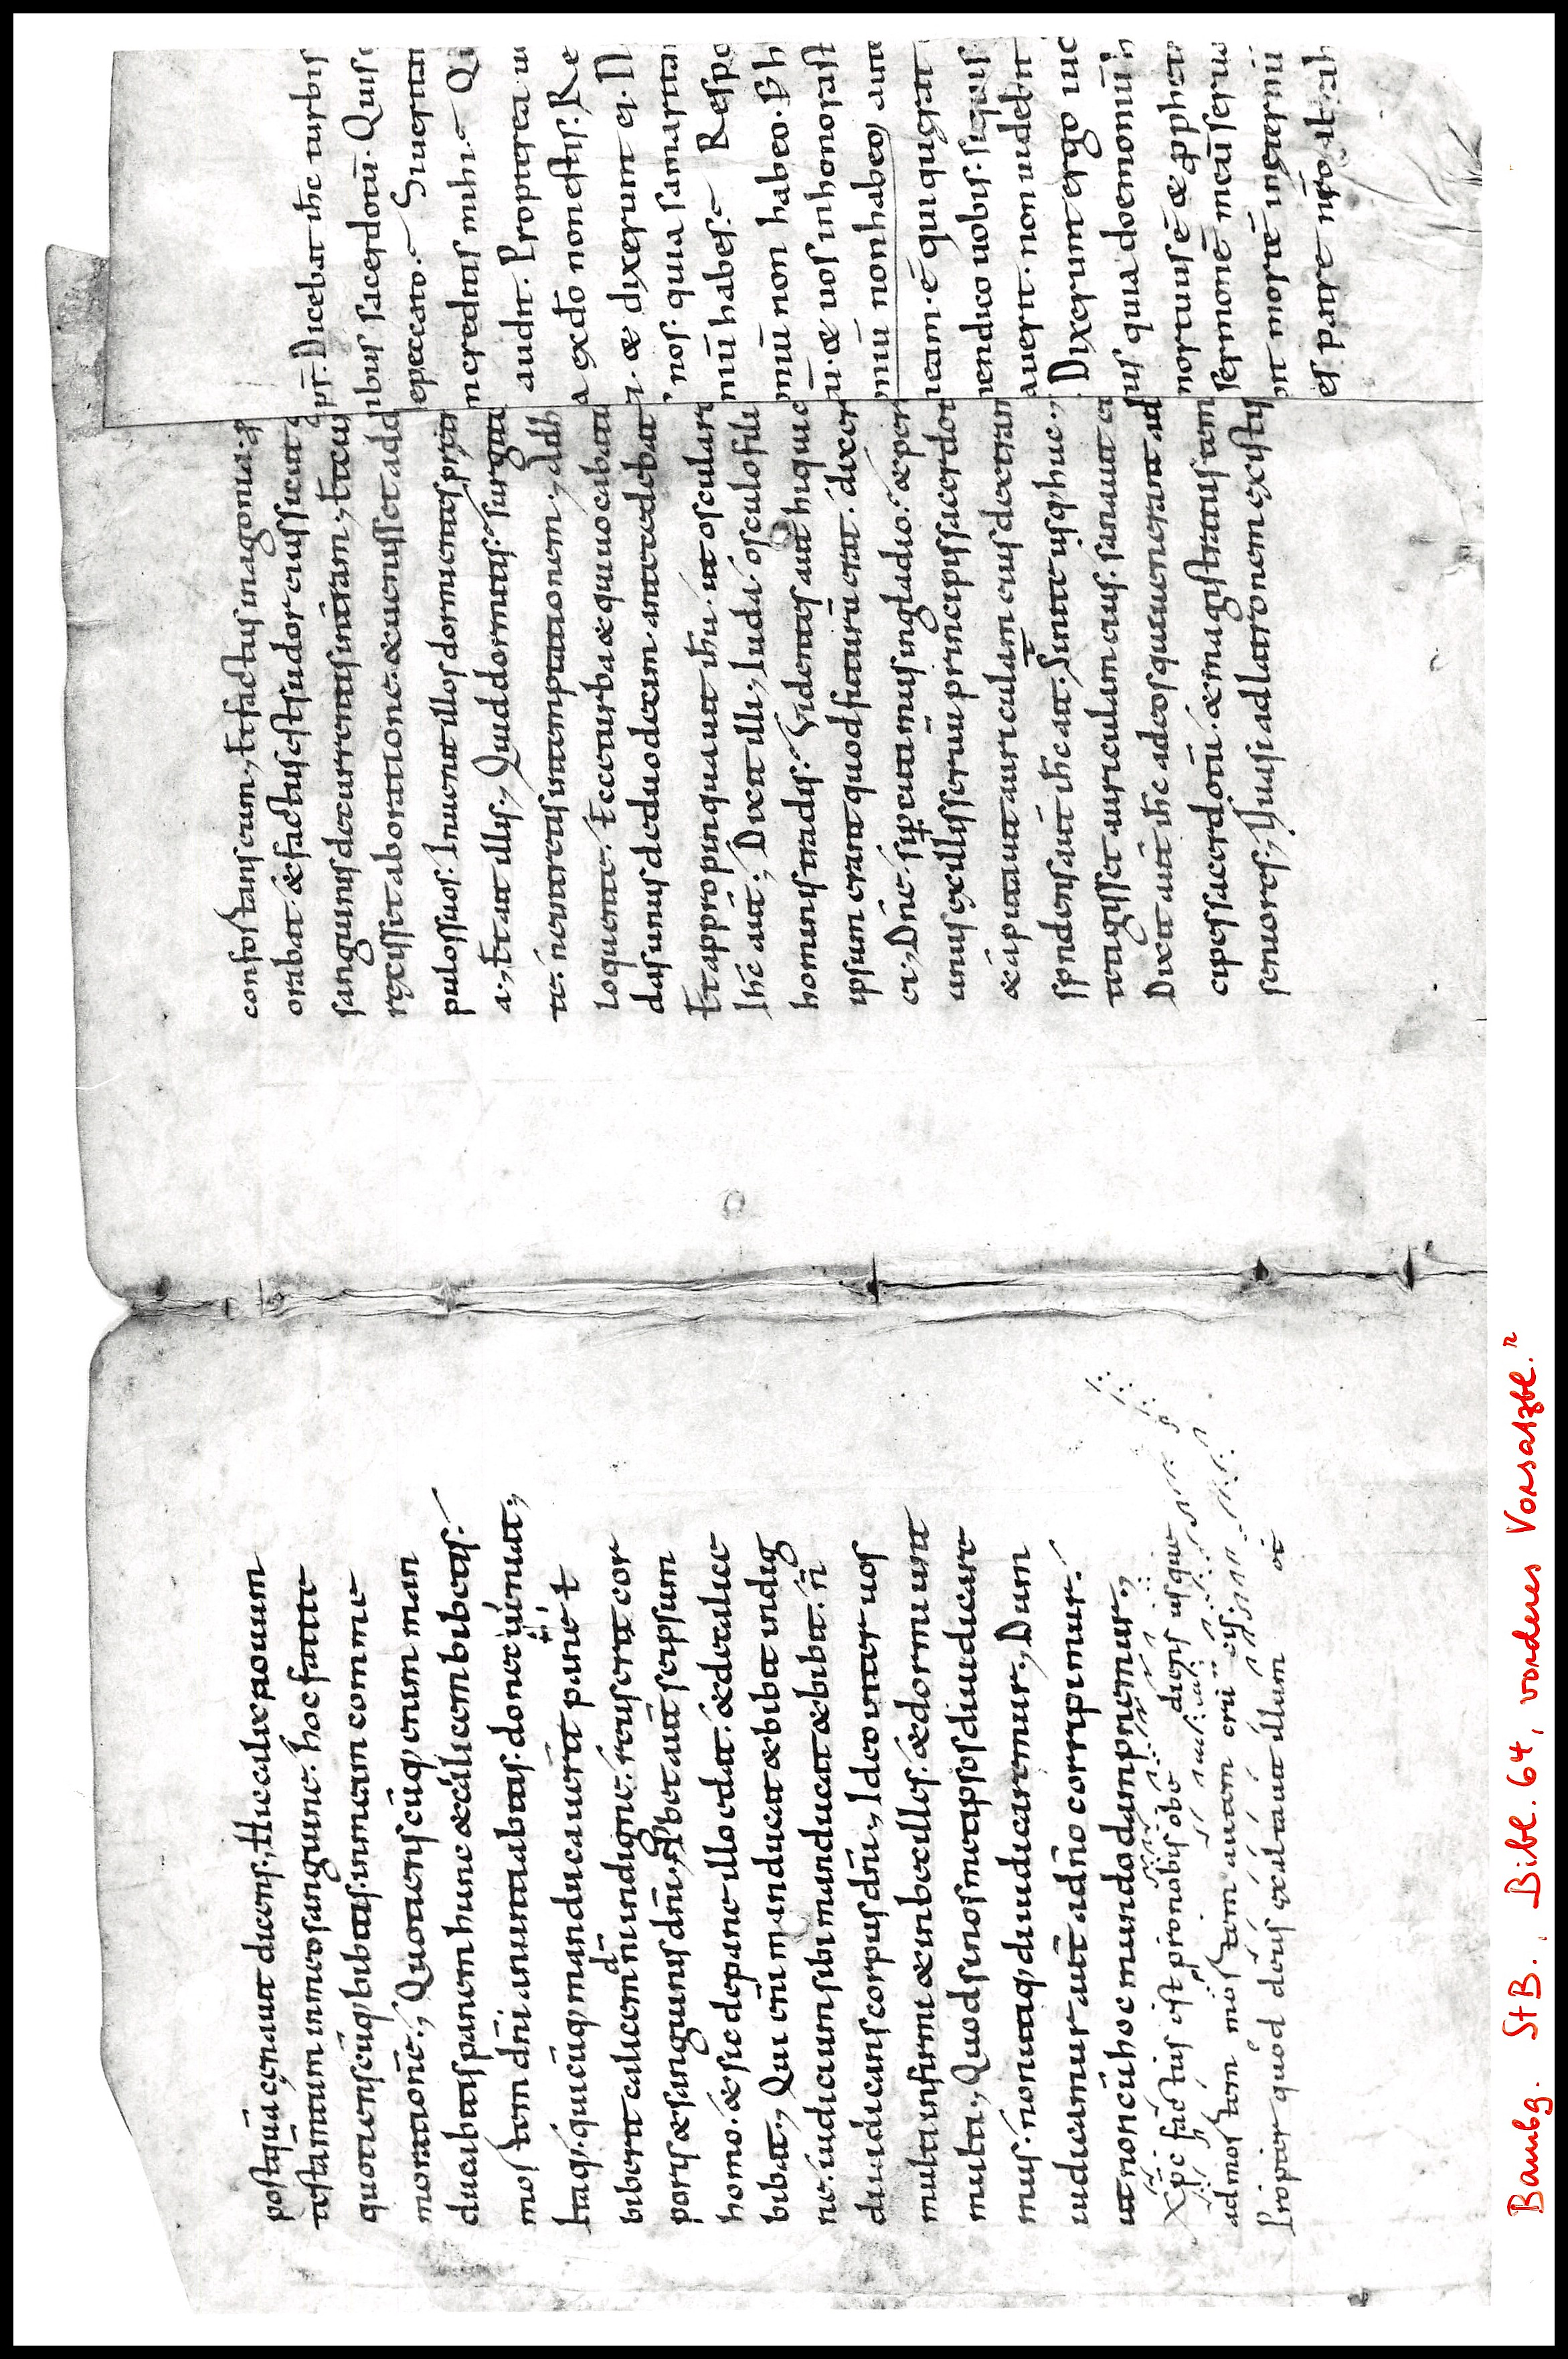 postquā cenauit dicens; Hic calix nouum
testamtum in meo sanguine. hoc facite
quotienscūq; bibitis. in meam comme
morationē; Quotienscūq; enim man
ducabitis panem hunc & calicem bibetis.
mortem dñi anuntiabitis. donec ueniat;
Itaq; quicūq; manducauerit panē t
biberit calicem dñi indigne. reus erit cor
poris & sanguinis dñi; Probet aūt se ipsum
homo. & sic de pane illo edat. & de calice
bibat; Qui eni manducat & bibit indig
ne. iudicium sibi manducat & bibit. ñ
diiudicans corpus dñi; Ideo inter uos
multi infirmi & inbecilles. & dormiunt
multi; Quod si nosmetipsos diiudicare
mus. non utiq; diiudicaremur; Dum
iudicamur aūt a dño corripimur.
ut non cū hoc mundo dampnemur;
Xpc factus est pro nobis obe diens usque
ad mortem mortem autem crucis
Propter quod deus exaltauit illum et
confortans eum; Et factus in agonia. p
orabat. & factus est sudor eius sicut g
sanguinis decurrentis in tram; Et cu
rexisset ab oratione. & uenisset ad d
pulos suos. Inuenit illos dormientes p̄ tri
a; Et ait illis; Quid dormitis? surgite
te. ne intretis in temptationem; Adh
loquente. Ecce turba & qui uocabatu
das unus de duodecim. antecedebat
Et appropinquauit ihu. ut oscularet
Ihc aūt; Dixit illi; Iuda. osculo fili
hominis tradis? Videntes aūt hi qui c
ipsum erant quod futurū erat. dixer
ei; Dñe. si pcutimus in gladio? & per
unus ex illis seruū principis sacerdot
& amputauit auriculam eius dextram
spndens aūt ihc ait. Sinite usq; huc;
tetigisset auriculam eius. sanauit eu
Dixit aūt ihc ad eos qui uenerant ad
cipes sacerdotū. & magistratus tem
seniores; Quasi ad latronem existis
pr̄. Dicebat ihc turbis
ibus sacerdotū. Quis e
e peccato. Si ueritat
n creditis mihi. Qi
audit. Propterea u
a ex dō non estis. Re
i. & dixerunt ei. N
nos. quia samarita
niū habes. Respo
oniū non habeo. S h
ū. & uos inhonorast
oniū non habeo, aute
meam. ē qui querat
men dico uobis. siquis
auerit. non uidebit
Dixerunt ergo iud
us quia doemoniū h
mortuus ē & pphete
sermonē meū serua
it mortē in eternū
es patre nr̄o abrah
Bambg. StB. Bibl. 64, vorderes Vorsatzbl. r